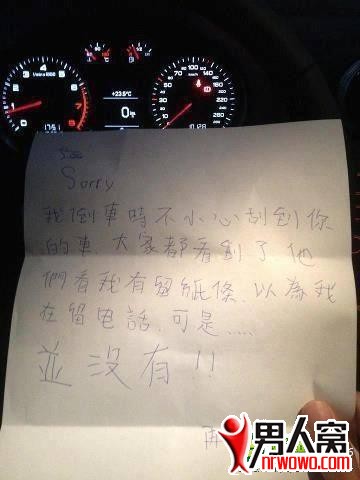 +23.5°C
Sorry
我倒車時不小心刮到你
的車,大家都看到了他
們看我有留紙條,以為我
在留电話,可是.....
並没有!!
再
男人窝
nrwowo.com